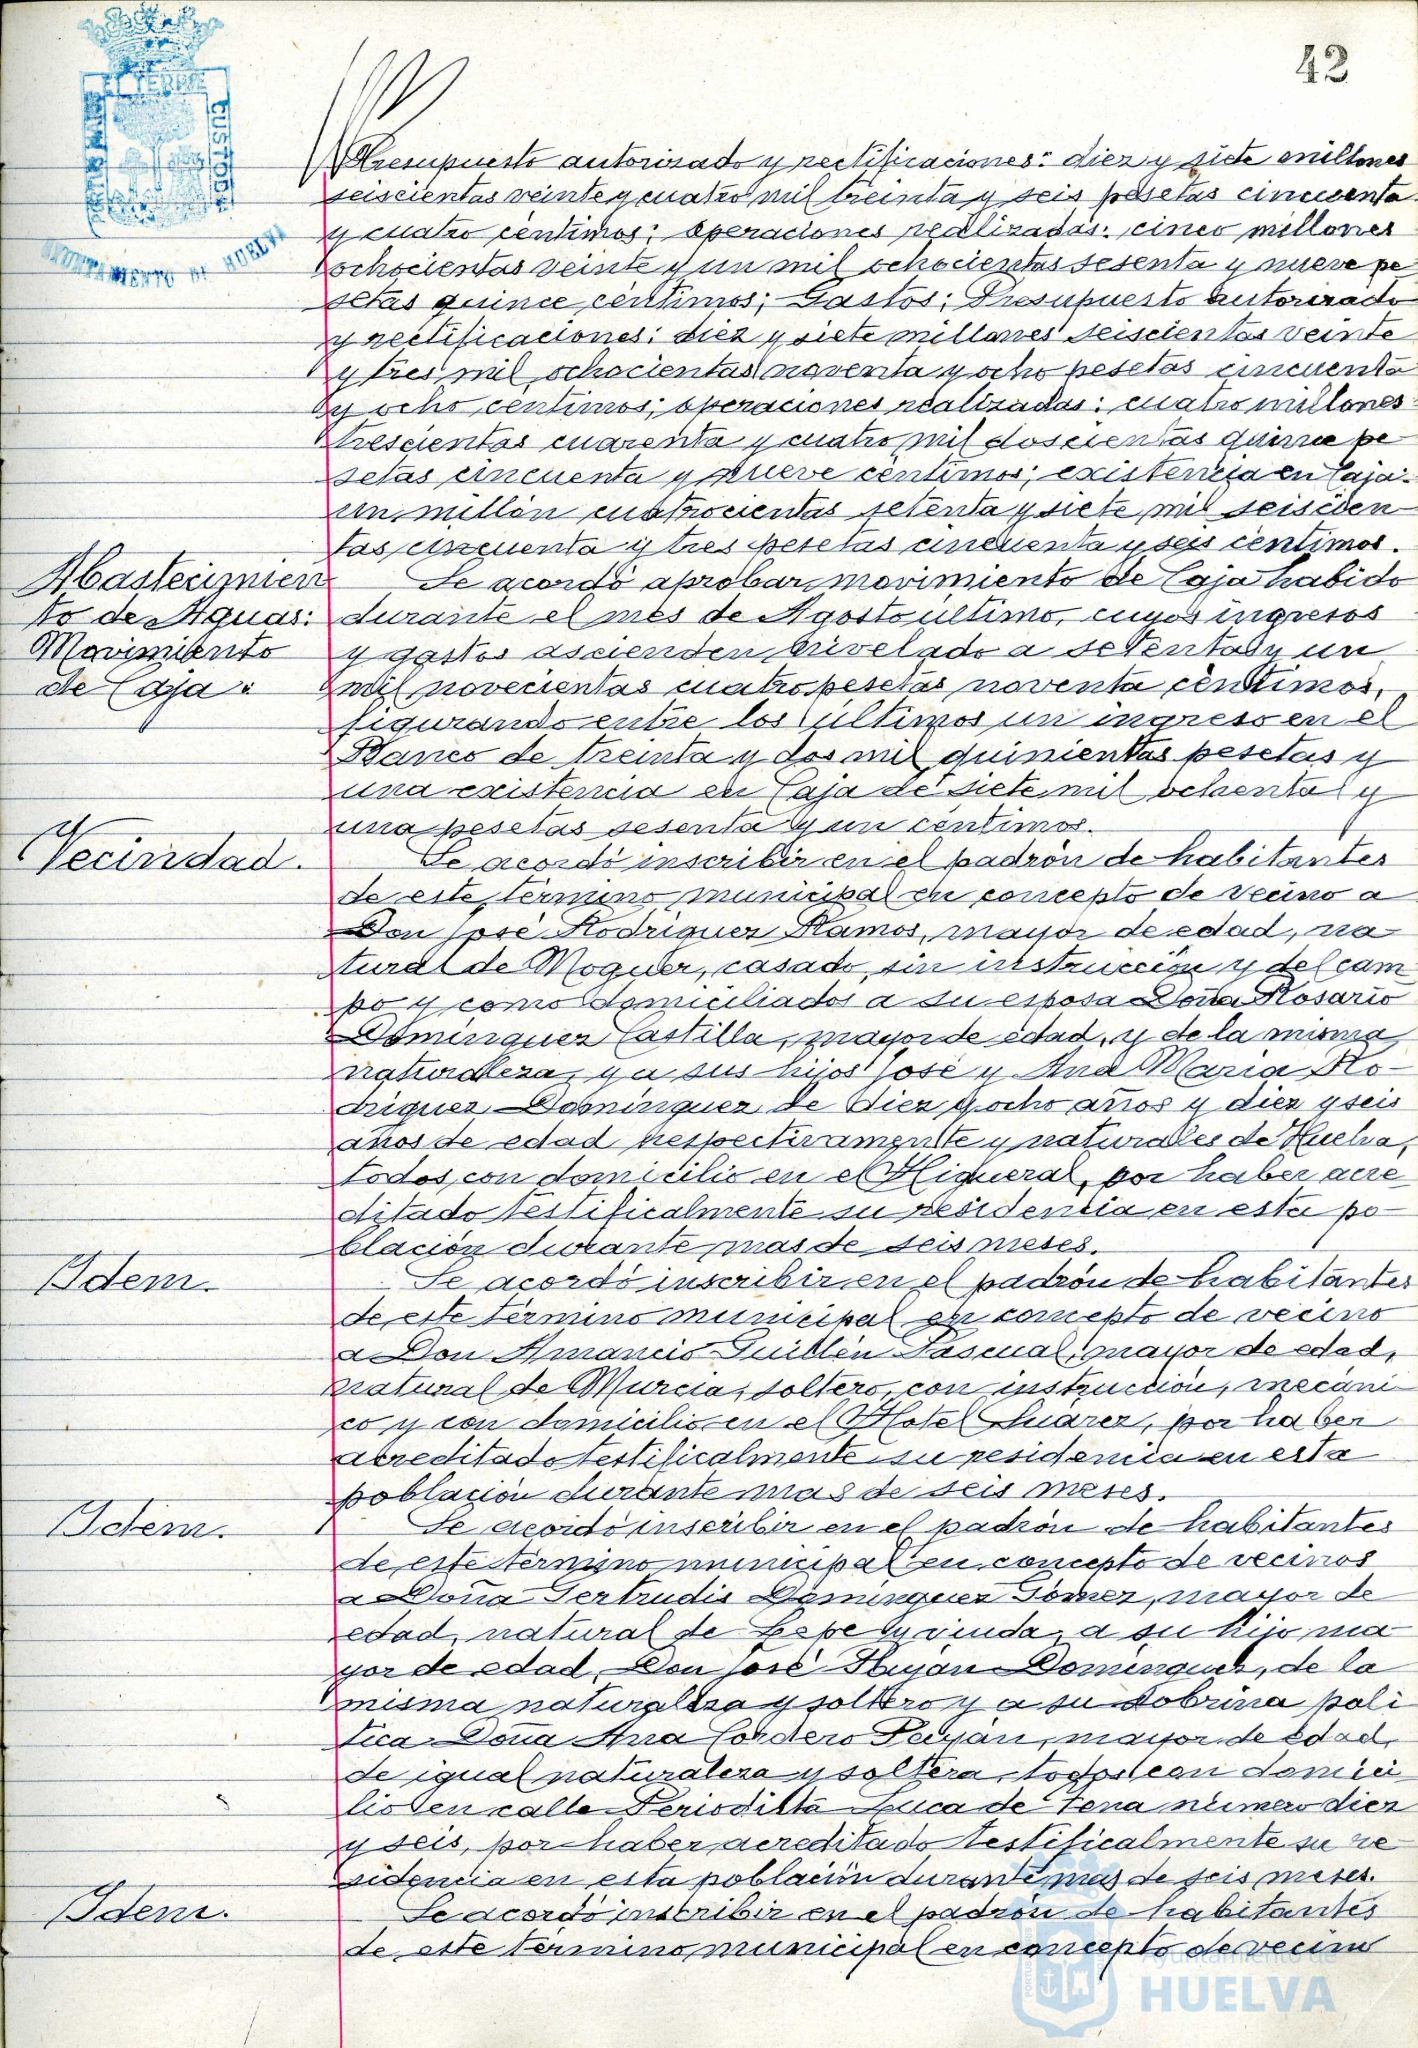 42
EL TERRE
CUSTODI
AYUNTAMIENTO DE HUELVA
Presupuesto autorizado y rectificaciones: diez y siete millones
seiscientas veinte y cuatro mil treinta y seis pesetas cincuenta
y cuatro céntimos; operaciones realizadas: cinco millones
ochocientas veinte y un mil ochocientas sesenta y nueve pe
setas quince céntimos; Gastos: Presupuesto autorizado
y rectificaciones: diez y siete millones seiscientas veinte
y tres mil ochocientas noventa y ocho pesetas cincuenta
y ocho céntimos; operaciones realizadas: cuatro millones
trescientas cuarenta y cuatro mil doscientas quince pe
setas cincuenta y nueve céntimos; existencia en Caja:
un millón cuatrocientas setenta y siete mil seiscien
tas cincuenta y tres pesetas cincuenta y seis céntimos.
Abastecimien
to de Aguas:
Movimiento
de Caja:
Se acordó aprobar movimiento de Caja habido
durante el mes de Agosto último, cuyos ingresos
y gastos ascienden nivelado a setenta y un
mil novecientas cuatro pesetas noventa céntimos,
figurando entre los últimos un ingreso en el
Banco de treinta y dos mil quinientas pesetas y
una existencia en Caja de siete mil ochenta y
una pesetas sesenta y un céntimos.
Vecindad.
Se acordó inscribir en el padrón de habitantes
de este término municipal en concepto de vecino a
Don José Rodriguez Ramos, mayor de edad, na
tural de Moguer, casado, sin instrucción y del cam
po y como domiciliados a su esposa Doña Rosario
Dominguez Castilla, mayor de edad, y de la misma
naturaleza, y a sus hijos José y Ana Maria Ro-
driguez Dominguez de diez y ocho años y diez y seis
años de edad respectivamente y naturales de Huelva,
todos con domicilio en el Higueral, por haber acre
ditado testificalmente su residencia en esta po-
blación durante mas de seis meses.
Idem.
Se acordó inscribir en el padrón de habitantes
de este término municipal en concepto de vecino
a Don Amancio Guillén Pascual, mayor de edad,
natural de Murcia, soltero, con instrucción, mecáni-
co y con domicilio en el Hotel Suarez, por haber
acreditado testificalmente su residencia en esta
población durante mas de seis meses.
Idem.
Se acordó inscribir en el padrón de habitantes
de este término municipal en concepto de vecinos
a Doña Gertrudis Dominguez Gómez, mayor de
edad, natural de Lepe y viuda, a su hijo ma
yor de edad, Don José Dominguez, de la
misma naturaleza y soltero y a su sobrina poli
tica Doña Ana Cordero mayor de edad,
de igual naturaleza y soltera, todos con domici
lio en calle Periodista Luca de Tena número diez
y seis, por haber acreditado testificalmente su re
sidencia en esta población durante mas de seis meses.
Idem.
Se acordó inscribir en el padrón de habitantes
de este término municipal en concepto de vecino
Ayuntamiento de
HUELVA